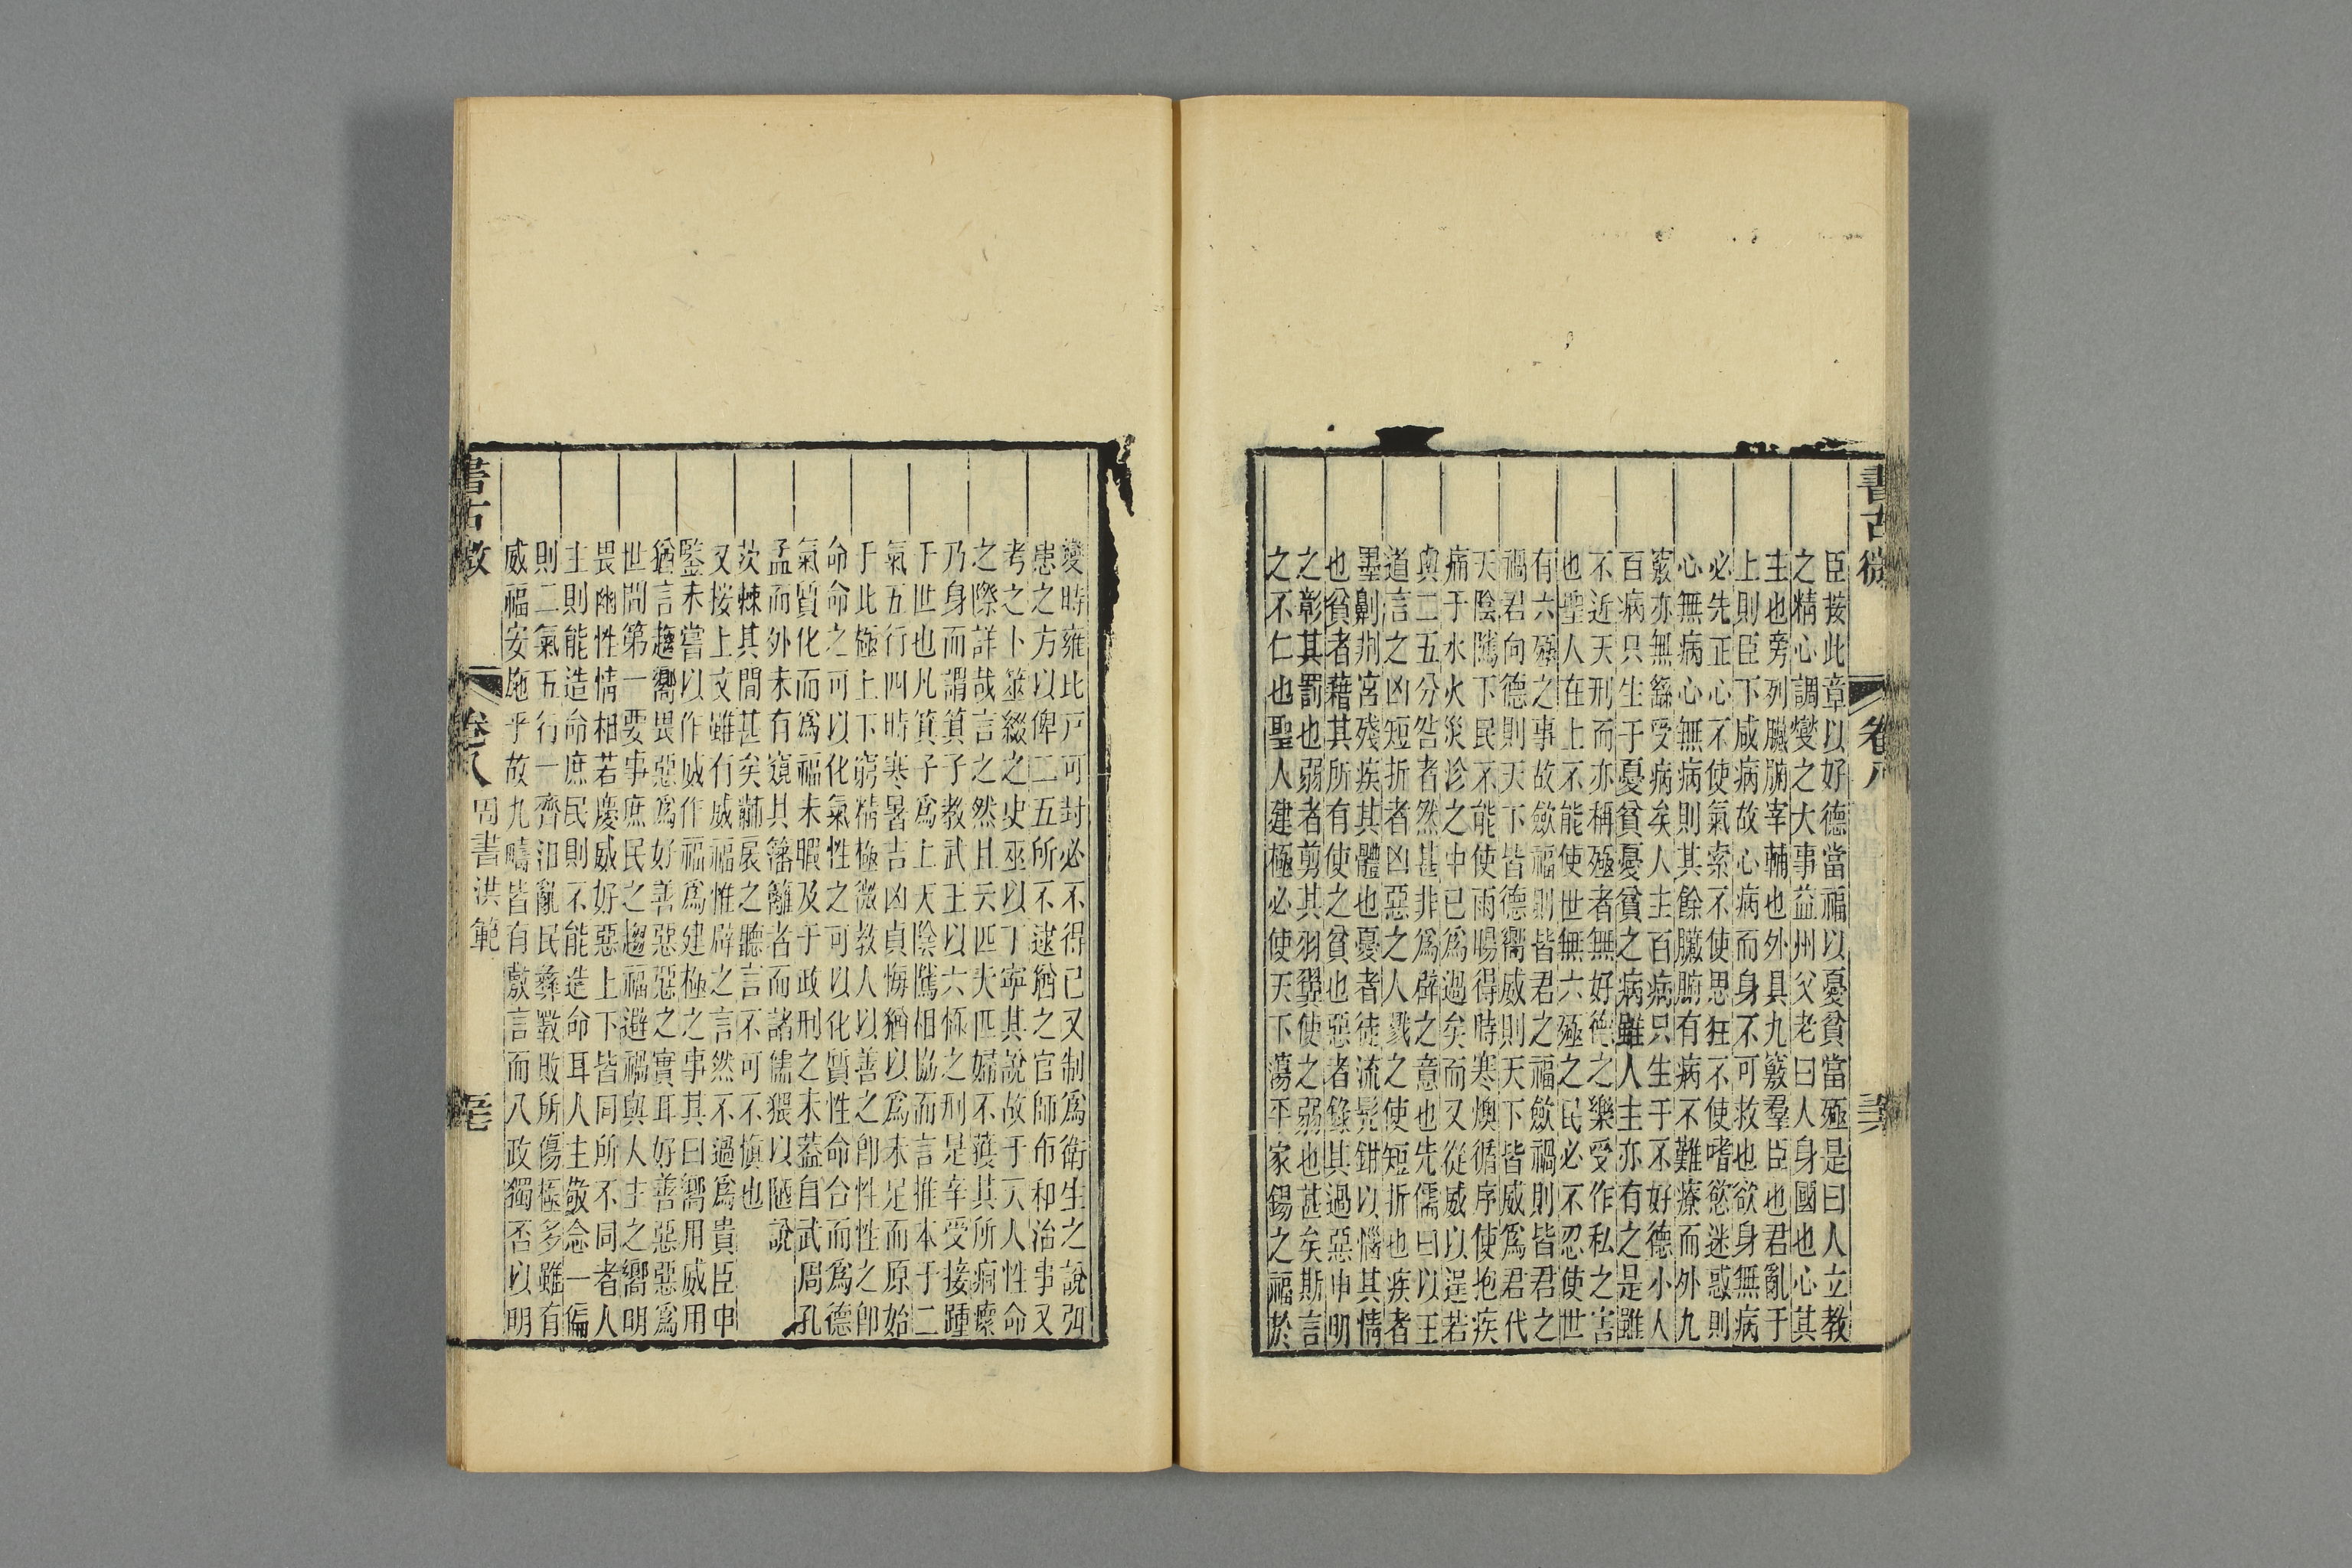 書古微
卷八
臣接此章以好德當福以憂貧當殛是曰人立教
之精心調燮之大事益州父老曰人身國也心其
主也旁列臟腑宰輔也外具九竅羣臣也君亂于
上則臣下咸病故心病而身不可救也欲身無病
必先正心不使氣索不使思狂不使嗜慾迷惑則
心無病心無病則其餘臟腑有病不難療而外九
竅亦無緣受病矣人主百病只生于不好德小人
百病只生于憂貧憂貧之病雖人主亦有之是雖
不近天刑而亦稱殛者無好德之樂受作私之害
也聖人在上不能使世無六殛之民必不忍使世
有六殛之事故歛福則皆君之福歛禍則皆君之
禍君向德則天下皆德嚮威則天下皆威爲君代
天陰隲下民不能使雨暘得時寒燠循序使抱疾
痛于水火災沴之中已爲過矣而又從威以逞若
與二五分咎者然甚非爲辟之意也先儒曰以王
道言之凶短折者凶惡之人戮之使短折也疾者
墨劓荆宮殘疾其體也憂者徒流髡鉗以惱其情
也貧者藉其所有使之貧也惡者錄其過惡申明
之彰其罰也弱者剪其羽翼使之弱也甚矣斯言
之不仁也聖人建極必使天下蕩平家錫之福於
變時雍比戸可封必不得已又制爲衛生之說弭
患之方以俾二五所不逮猶之官師布和治事又
考之卜筮綴之史巫以丁寧其說故于天人性命
之際詳哉言之然且夭匹夫匹婦不獲其所痌瘝
乃身而謂箕子教武王以六極之刑是辛受接踵
于世也凡箕子爲上天陰隲相協而言推本于二
氣五行四時寒暑吉凶貞悔猶以爲未足而原始
于此極上下窮精極微教人以善之卽性性之卽
命命之可以化氣性之可以化質性命合而爲德
氣質化而爲福未暇及于政刑之未蓋自武周孔
孟而外未有窺其籓籬者而諸儒猥以陋說
茨棘其閒甚矣黼扆之聽言不可不愼也
又接上文雖有威福惟辟之言然不過爲貴臣申
鑒未嘗以作威作福爲建極之事其曰嚮用威用
猶言趨嚮畏惡爲好善惡惡之實耳好善惡惡爲
世間第一要事庶民之趨福避禍與人主之嚮明
畏幽性情相若慶威好惡上下皆同所不同者人
主則能造命庶民則不能造命耳人主敬念一偏
則二氣五行一齊汨亂民彝斁敗所傷極多雖有
威福安施乎故九疇皆有敷言而八政獨否以明
書古微
卷八
周書洪範